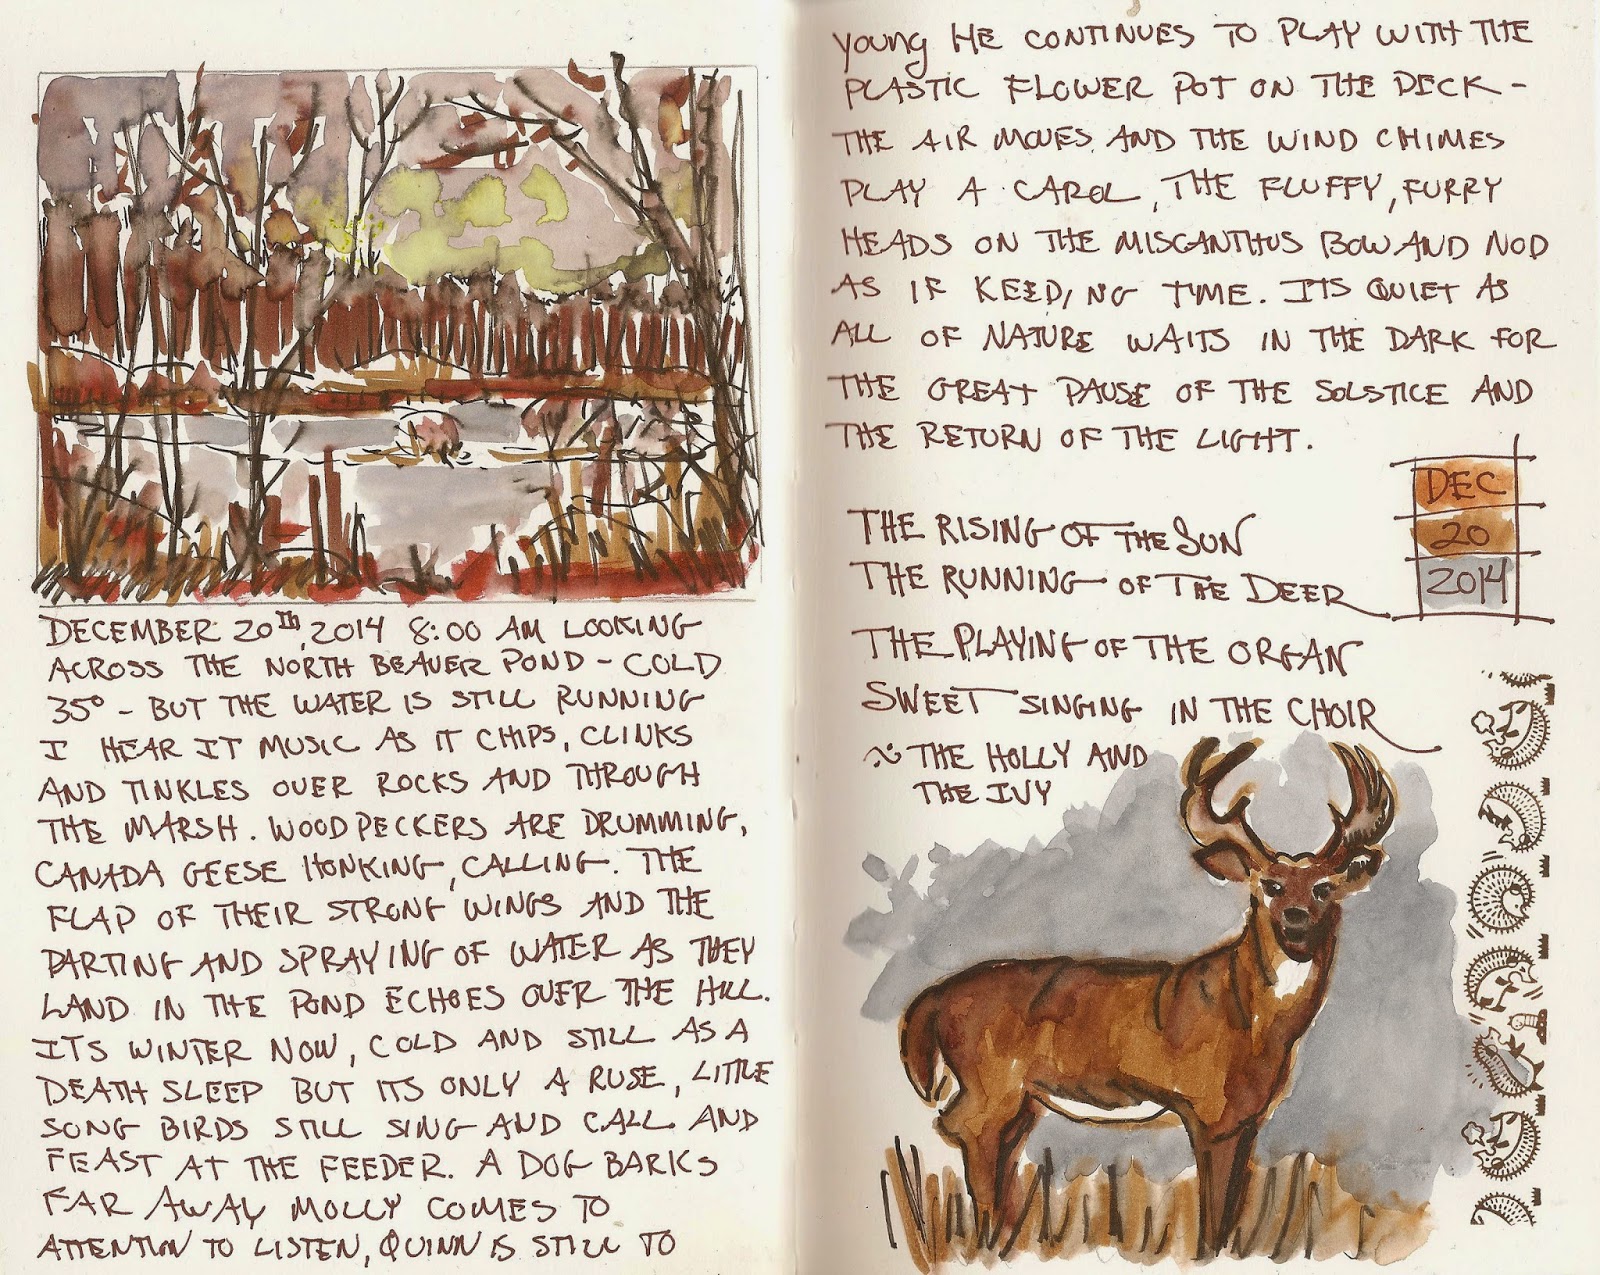 DECEMBER 20TH, 2014 8:00 AM LOOKING
ACROSS THE NORTH BEAVER POND - COLD
35° - BUT THE WATER IS STILL RUNNING
I HEAR IT MUSIC AS IT CHIPS, CLINKS
AND TINKLES OVER ROCKS AND THROUGH
THE MARSH. WOODPECKERS ARE DRUMMING,
CANADA GEESE HONKING, CALLING. THE
FLAP OF THEIR STRONG WINGS AND THE
PARTING AND SPRAYING OF WATER AS THEY
LAND IN THE POND ECHOES OVER THE HILL.
ITS WINTER NOW, COLD AND STILL AS A
DEATH SLEEP BUT ITS ONLY A RUSE, LITTLE
SONG BIRDS STILL SING AND CALL AND
FEAST AT THE FEEDER. A DOG BARKS
FAR AWAY MOLLY COMES TO
ATTENTION TO LISTEN, QUINN IS STILL TO
YOUNG HE CONTINUES TO PLAY WITH THE
PLASTIC FLOWER POT ON THE DECK -
THE AIR MOVES AND THE WIND CHIMES
PLAY A CAROL, THE FLUFFY, FURRY
HEADS ON THE MISCANTHUS BOW AND NOD
AS IF KEEPING TIME. ITS QUIET AS
ALL OF NATURE WAITS IN THE DARK FOR
THE GREAT PAUSE OF THE SOLSTICE AND
THE RETURN OF THE LIGHT.
DEC
20
2014
THE RISING OF THE SUN
THE RUNNING OF THE DEER
THE PLAYING OF THE ORGAN
SWEET SINGING IN THE CHOIR
~ THE HOLLY AND
THE IVY